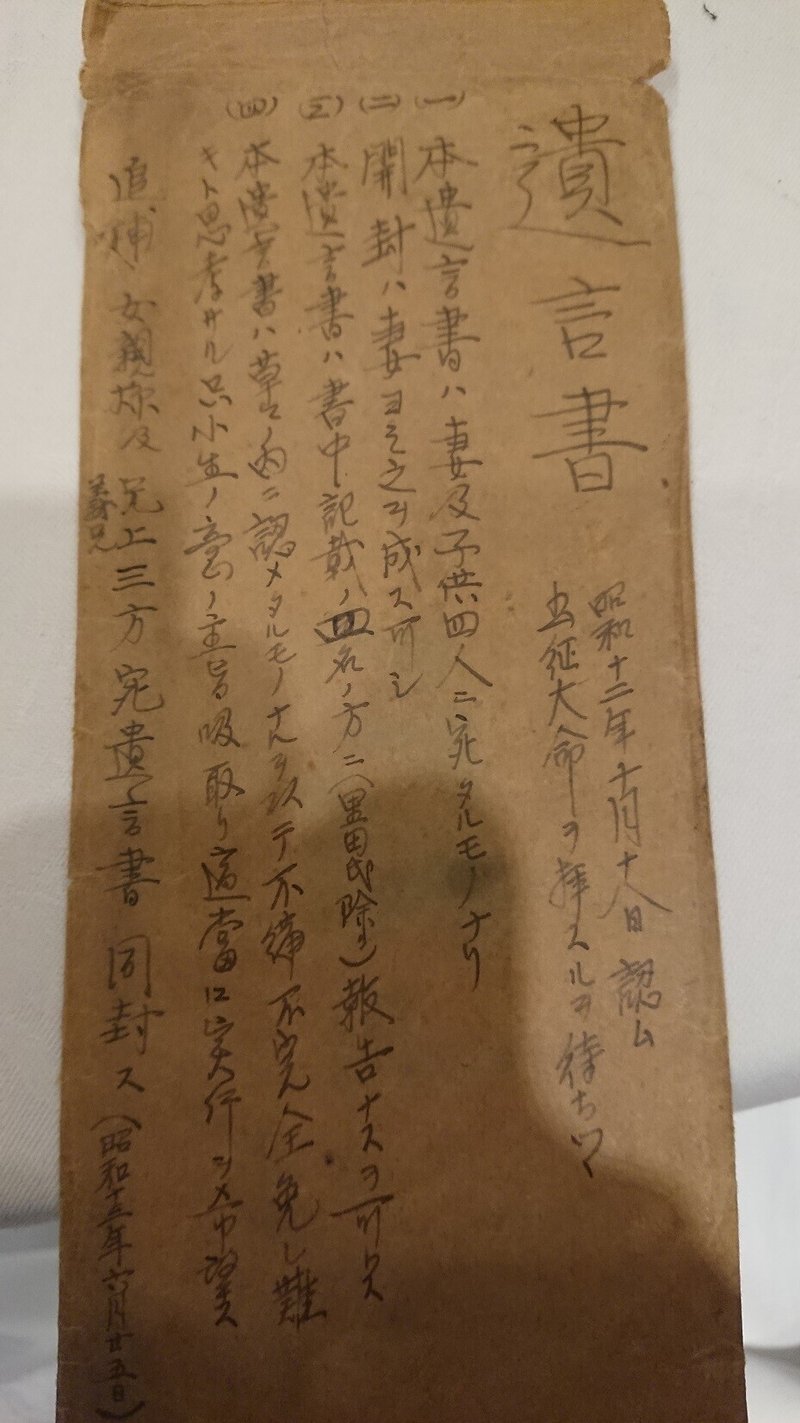 遺言書
昭和十二年十月十八日認ム
出征大命ヲ拝スルヲ待チツヽ
(一)本遺言書ハ妻及子供四人ニ宛タルモノナリ
(二)開封ハ妻ヨリ之ヲ成ス可シ
(三)本遺言書ハ書中記載ノ四名ノ方ニ(黒田氏除ク)報告ナスヲ可トス
(四)本遺言書ハ草々ノ内ニ認メタルモノナルヲ以テ不備不完全免レ難
キト思考サル只小生ノ意ノ主旨吸取リ適当ニ実行シメ希望ス
追補、女親様及兄上三方宛遺言書同封ス(昭和十三年六月廿五日)
義兄